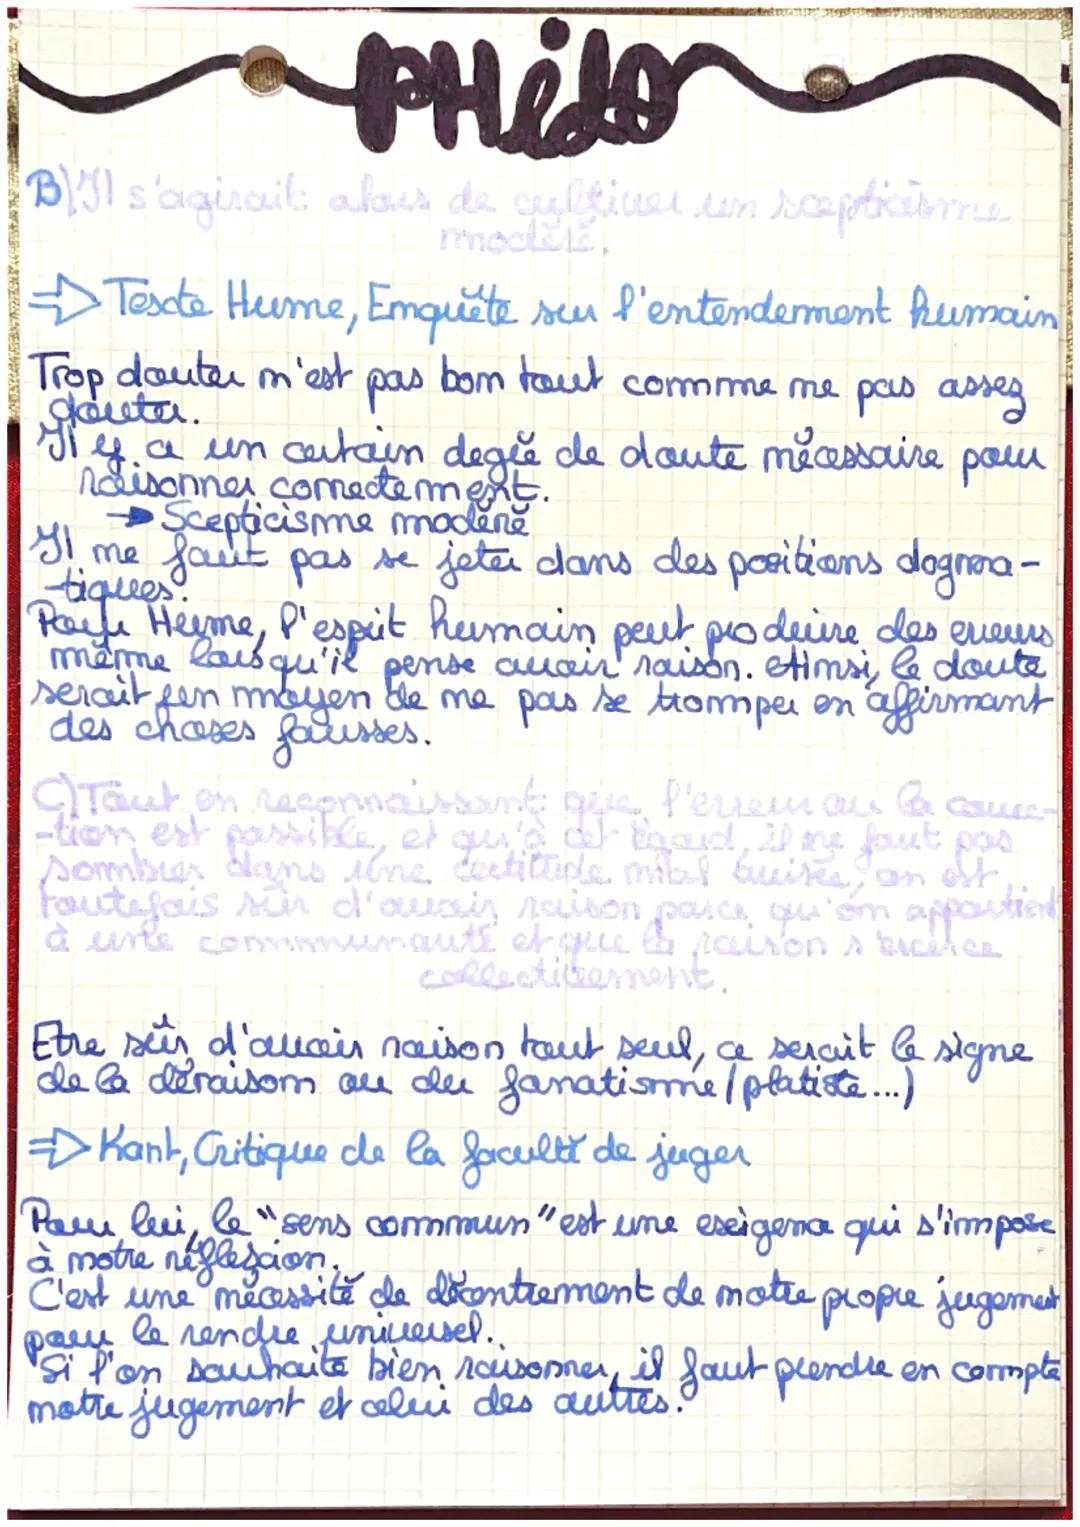 PHilo
B) Il s'agirait alors de cultiver un scepticisme
modéré.
=> Texte Hume, Enquête sur l'entendement humain
Trop douter n'est pas bon tout comme ne pas assez
douter.
Il y a un certain degré de doute nécessaire pour
raisonner correctement.
→ Scepticisme modéré
Il ne faut pas se jeter dans des positions dogma-
-tiques.
Pour Hume, l'esprit humain peut produire des erreurs
même lorsqu'il pense avoir raison. Ainsi, le doute
serait un moyen de ne pas se tromper en affirmant
des choses fausses.
C) Tout en reconnaissant que l'erreur ou la correc-
-tion est possible, et qu'à cet égard, il ne faut pas
sombrer dans une certitude mal avisée, on est
toutefois sûr d'avoir raison parce qu'on appartient
à une communauté et que la raison s'exerce
collectivement.
Etre sûr d'avoir raison tout seul, ce serait le signe
de la déraison ou du fanatisme (platiste...)
=> Kant, Critique de la faculté de juger
Pour lui, le "sens commun" est une exigence qui s'impose
à notre réflexion.
C'est une nécessité de décentrement de notre propre jugement
pour le rendre universel.
Si l'on souhaite bien raisonner, il faut prendre en compte
notre jugement et celui des autres.